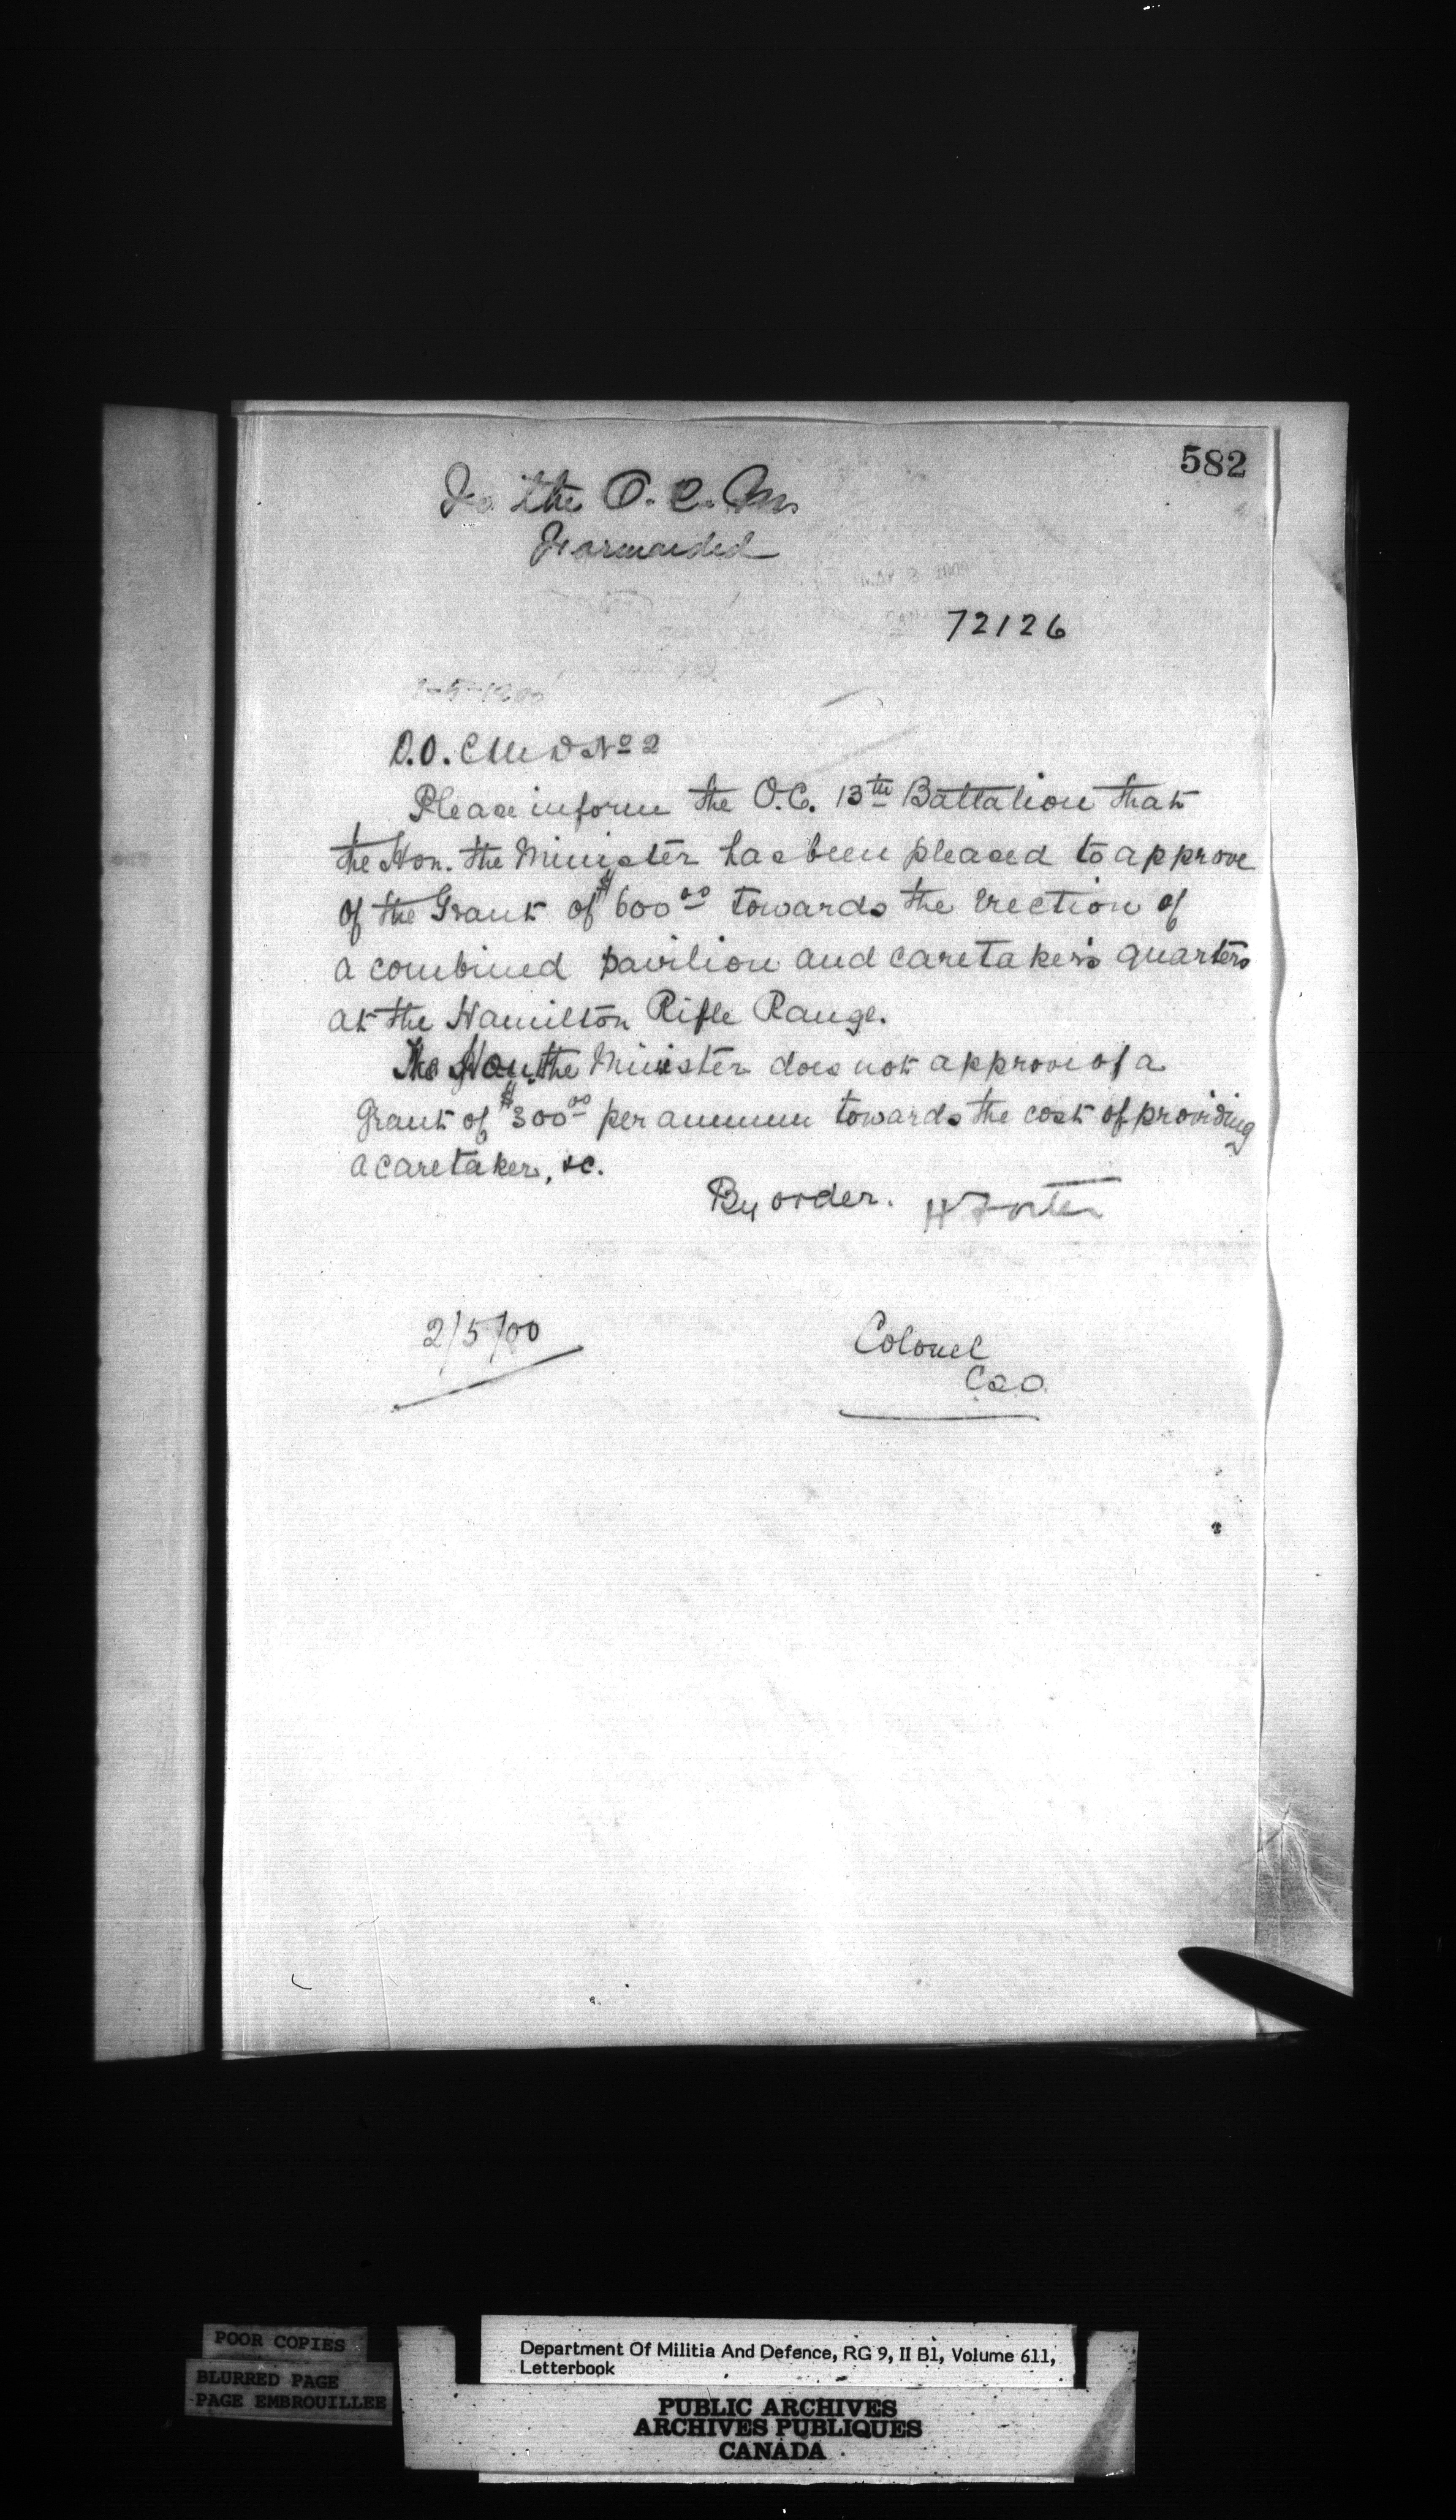 582
To the O. C.
Forwarded
MAY 3 1900
72126
1-5-1900
D.O.C. M D No 2
Please inform the O.C. 13th Battalion that
the Hon. the Minister has been pleased to approve
of the Grant of $600 00 towards the erection of
a combined pavilion and caretaker's quarters
at the Hamilton Rifle Range.
The Hon. the Minister does not approve of a
Grant of $300 00 per annum towards the cost of providing
a caretaker, &c.
By order. H Foster
2/5/00
Colonel
CSO
POOR COPIES
BLURRED PAGE
PAGE EMBROUILLEE
Department Of Militia And Defence, RG 9, II B1, Volume 611,
Letterbook
PUBLIC ARCHIVES
ARCHIVES PUBLIQUES
CANADA